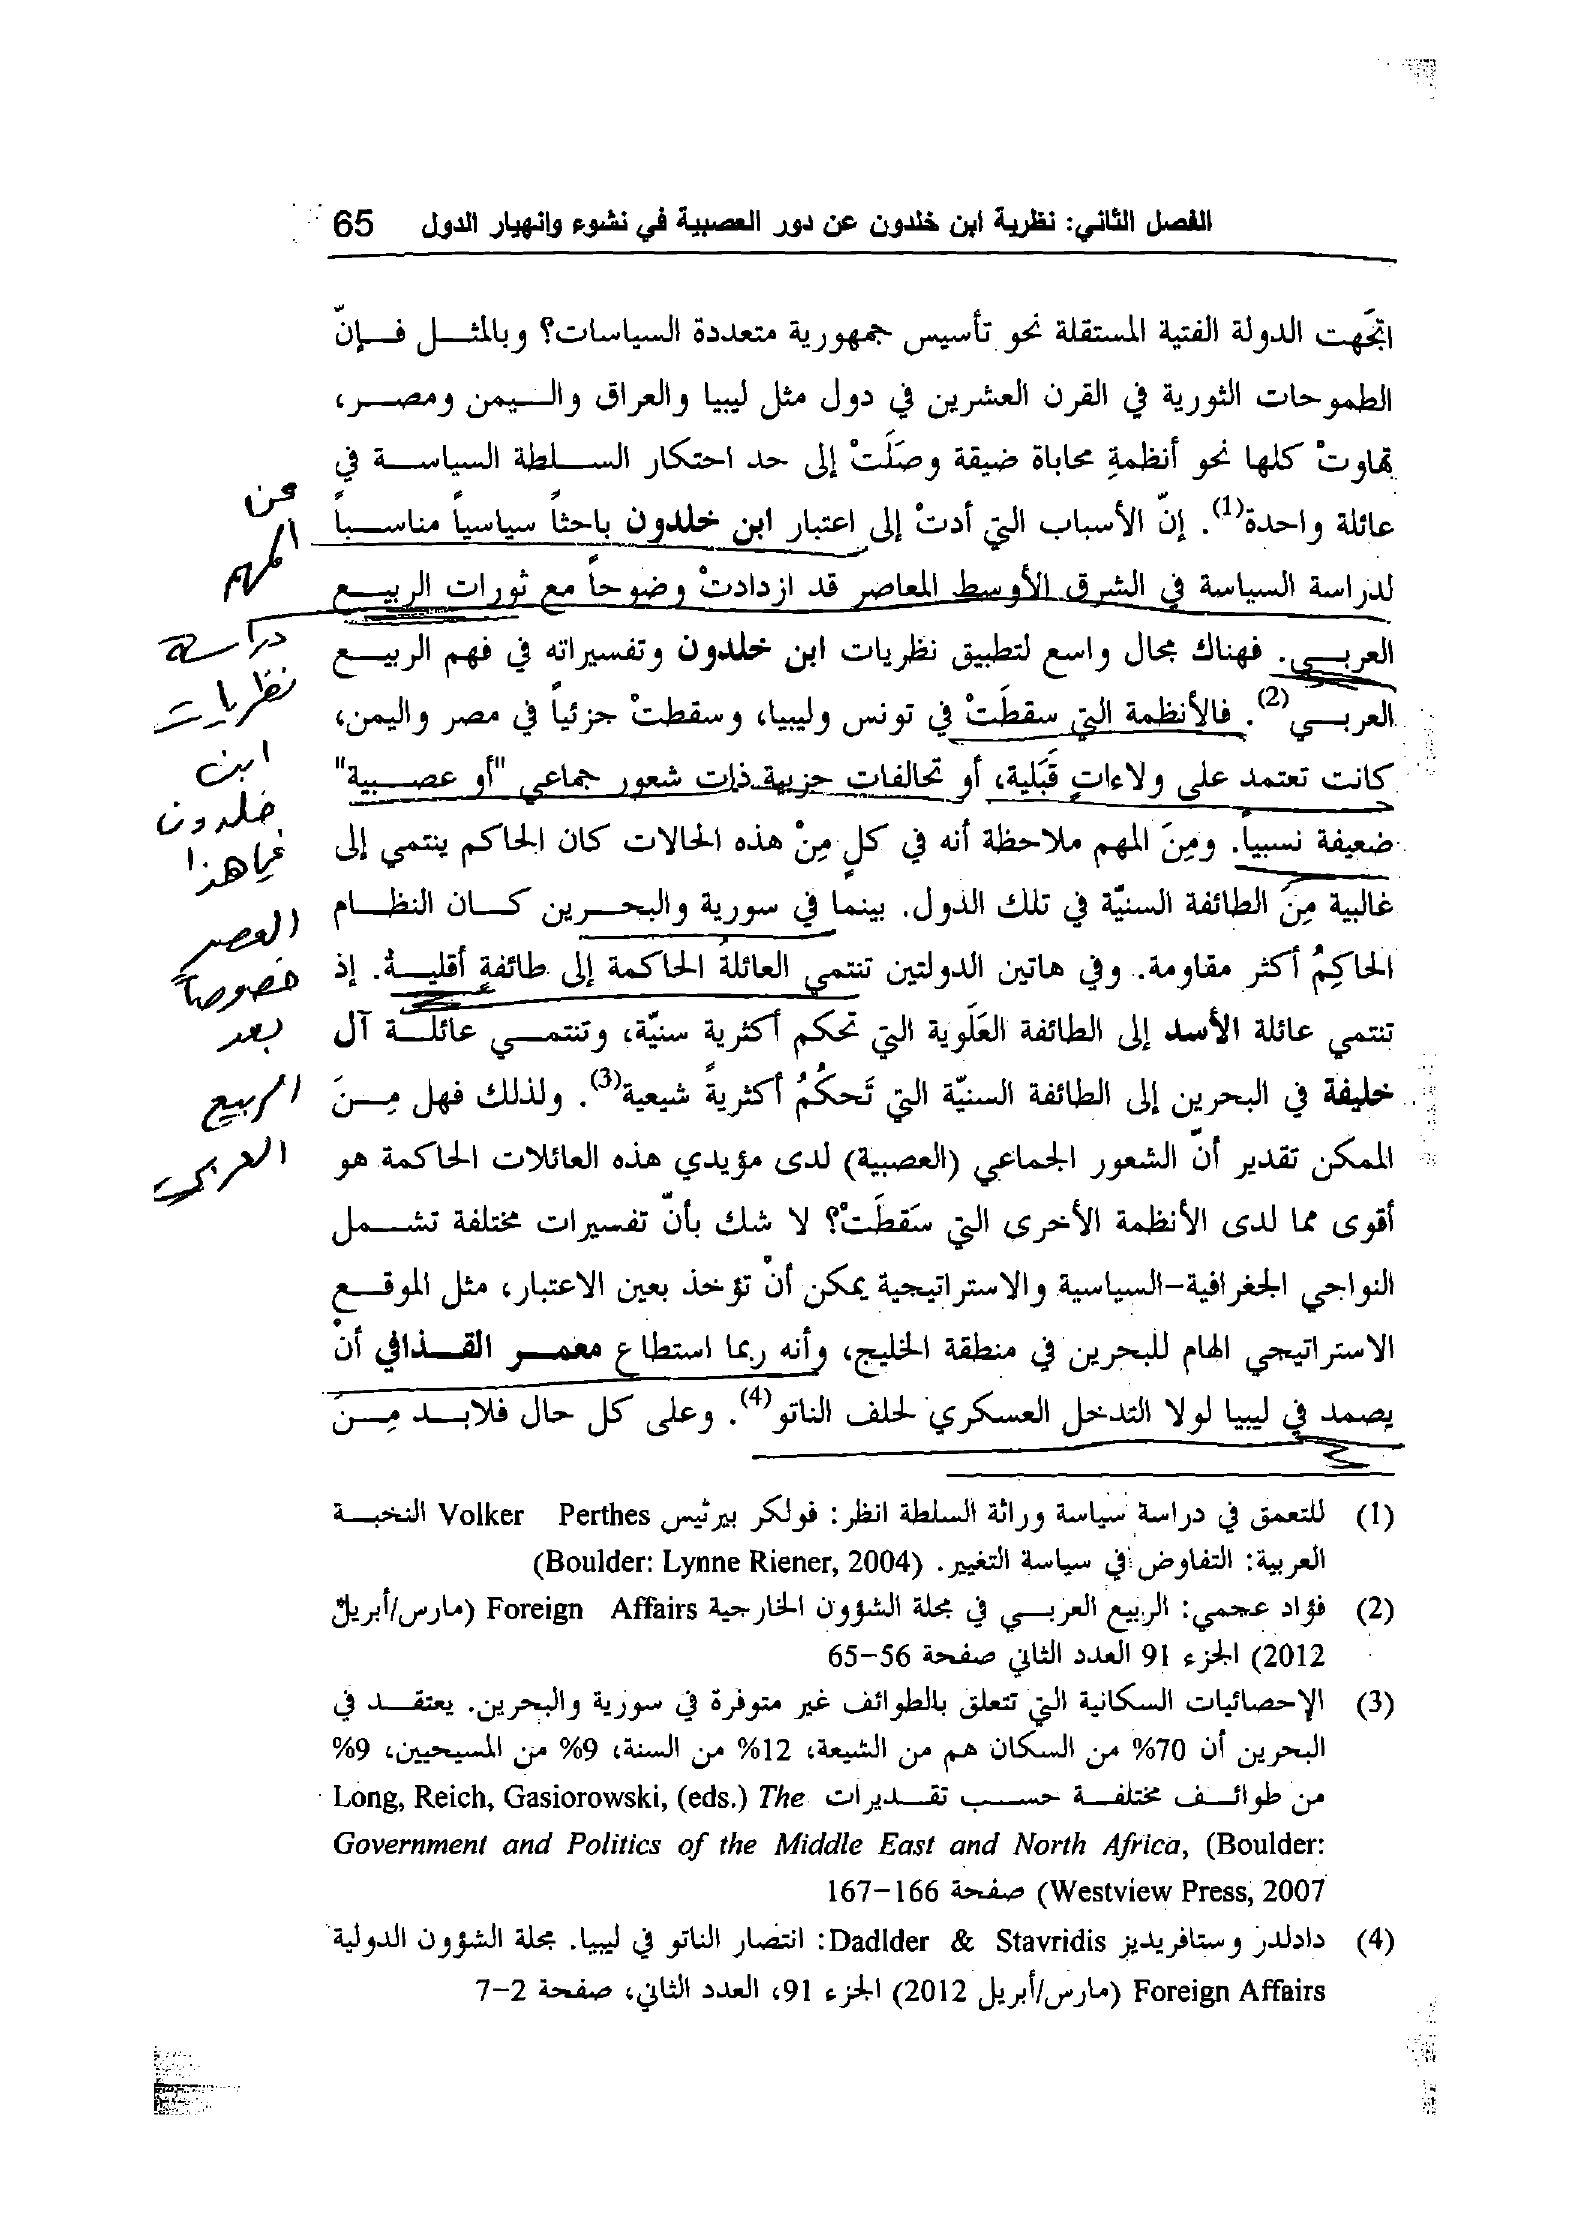 الفصل الثاني: نظرية ابن خلدون عن دور العصبية في نشوء وانهيار الدول 65
اتجَهت الدولة الفتية المستقلة نحو تأسيس جمهورية متعددة السياسات؟ وبالمثل فإنّ
الطموحات الثورية في القرن العشرين في دول مثل ليبيا والعراق واليمن ومصر،
تهاوتْ كلها نحو أنظمةِ محاباة ضيقة وصَلَتْ إلى حد احتكار السلطة السياسة في
عائلة واحدة(1). إنّ الأسباب التي أدتْ إلى اعتبار ابن خلدون باحثاً سياسياً مناسباً
لدراسة السياسة في الشرق الأوسط المعاصر قد ازدادتْ وضوحاً مع ثورات الربيع
العربي. فهناك مجال واسع لتطبيق نظريات ابن خلدون وتفسيراته في فهم الربيع
العربي(2). فالأنظمة التي سقطَتْ في تونس وليبيا، وسقطتْ جزئياً في مصر واليمن،
كانت تعتمد على ولاءاتٍ قَبَلية، أو تحالفات حزبية ذات شعور جماعي "أو عصبية"
ضعيفة نسبياً. ومِنَ المهم ملاحظة أنه في كلٍ مِنْ هذه الحالات كان الحاكم ينتمي إلى
غالبية مِنَ الطائفة السنيّة في تلك الدول. بينما في سورية والبحرين كان النظام
الحاكِمُ أكثر مقاومة. وفي هاتين الدولتين تنتمي العائلةُ الحاكمة إلى طائفةٍ أقليةٌ. إذ
تنتمي عائلة الأسد إلى الطائفة العَلَوية التي تحكم أكثرية سنيّة، وتنتمي عائلة آل
خليفة في البحرين إلى الطائفة السنيّة التي تَحكُمُ أكثريةً شيعية(3). ولذلك فهل مِنَ
الممكن تقدير أنّ الشعور الجماعي (العصبية) لدى مؤيدي هذه العائلات الحاكمة هو
أقوى مما لدى الأنظمة الأخرى التي سَقطَتْ؟ لا شك بأنّ تفسيرات مختلفة تشمل
النواحي الجغرافية-السياسية والاستراتيجية يمكن أنْ تؤخذ بعين الاعتبار، مثل الموقع
الاستراتيجي الهام للبحرين في منطقة الخليج، وأنه ربما استطاع معمر القذافي أنْ
يصمد في ليبيا لولا التدخل العسكري لحلف الناتو(4). وعلى كل حال فلابد مِنَ
من
المهم
دراسة
نظريات
ابن
خلدون
في هذا
العصر
خصوصاً
بعد
الربيع
العربي
(1) للتعمق في دراسة سياسة وراثة السلطة انظر: فولكر بيرثيس Volker Perthes النخبة
العربية: التفاوض في سياسة التغيير. (Boulder: Lynne Riener, 2004)
(2) فؤاد عجمي: الربيع العربي في مجلة الشؤون الخارجية Foreign Affairs (مارس/أبريل
2012) الجزء 91 العدد الثاني صفحة 56-65
(3) الإحصائيات السكانية التي تتعلق بالطوائف غير متوفرة في سورية والبحرين. يعتقد في
البحرين أن 70% من السكان هم من الشيعة، 12% من السنة، 9% من المسيحيين، 9%
من طوائف مختلفة حسب تقديرات Long, Reich, Gasiorowski, (eds.) The
Government and Politics of the Middle East and North Africa, (Boulder:
Westview Press, 2007) صفحة 166-167
(4) دادلدر وستافريديز Dadlder & Stavridis: انتصار الناتو في ليبيا. مجلة الشؤون الدولية
Foreign Affairs (مارس/أبريل 2012) الجزء 91، العدد الثاني، صفحة 2-7